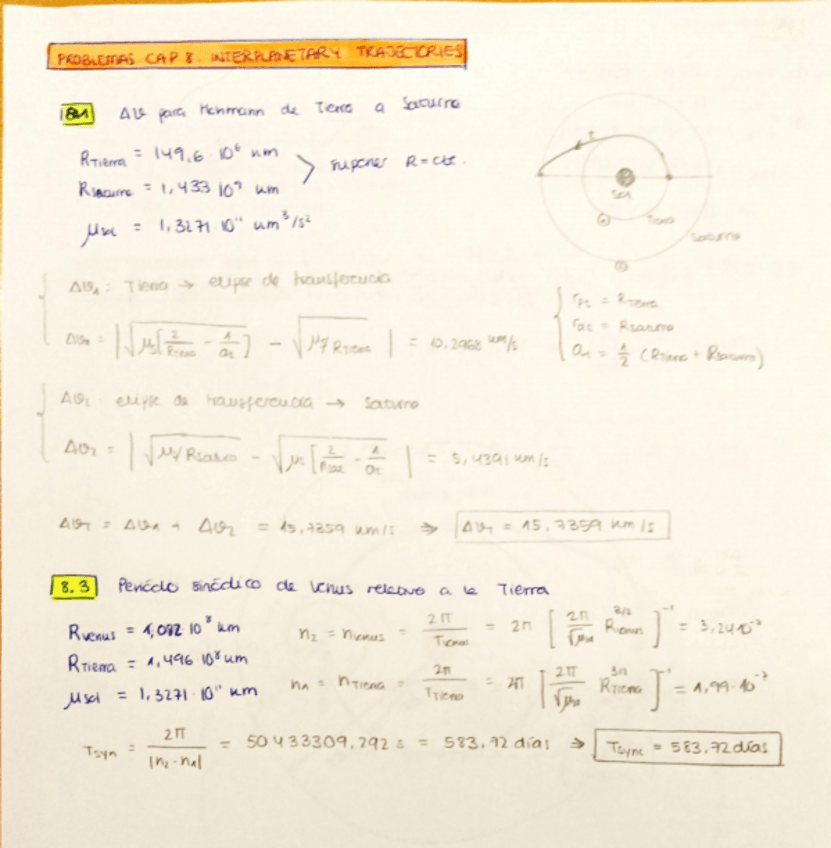 PROBLEMAS CAP 8. INTERPLANETARY TRAJECTORIES
8.1 Δv para Hohmann de Tierra a Saturno
R_Tierra = 149,6 · 10⁶ km
R_Saturno = 1,433 10⁹ km
> suponer R = cte.
μ_sol = 1,3271 · 10¹¹ km³/s²
t
Sol
Tierra
Saturno
① 
Δv₁ : Tierra → elipse de transferencia
Δv₁ = | √(μ_s[2/R_Tierra − 1/a_t]) − √(μ_s/R_Tierra) | = 10,2968 km/s
r_pt = R_Tierra
r_at = R_Saturno
a_t = 1/2 (R_Tierra + R_Saturno)
Δv₂ : elipse de transferencia → Saturno
Δv₂ = | √(μ_s/R_Saturno) − √(μ_s[2/R_Sat − 1/a_t]) | = 5,4391 km/s
Δv_T = Δv₁ + Δv₂ = 15,7359 km/s ⇒ Δv_T = 15,7359 km/s
8.3 Periódo sinódico de Venus relativo a la Tierra
R_Venus = 1,082 · 10⁸ km
R_Tierra = 1,496 10⁸ km
μ_sol = 1,3271 · 10¹¹ km
n₂ = n_venus = 2π/T_venus = 2π [2π/√μ_sol R_venus^3/2]⁻¹ = 3,24·10⁻⁷
n₁ = n_Tierra = 2π/T_Tierra = 2π [2π/√μ_sol R_Tierra^3/2]⁻¹ = 1,99·10⁻⁷
T_syn = 2π/|n₂-n₁| = 50433309,792 s = 583,72 días ⇒ T_sync = 583,72 días